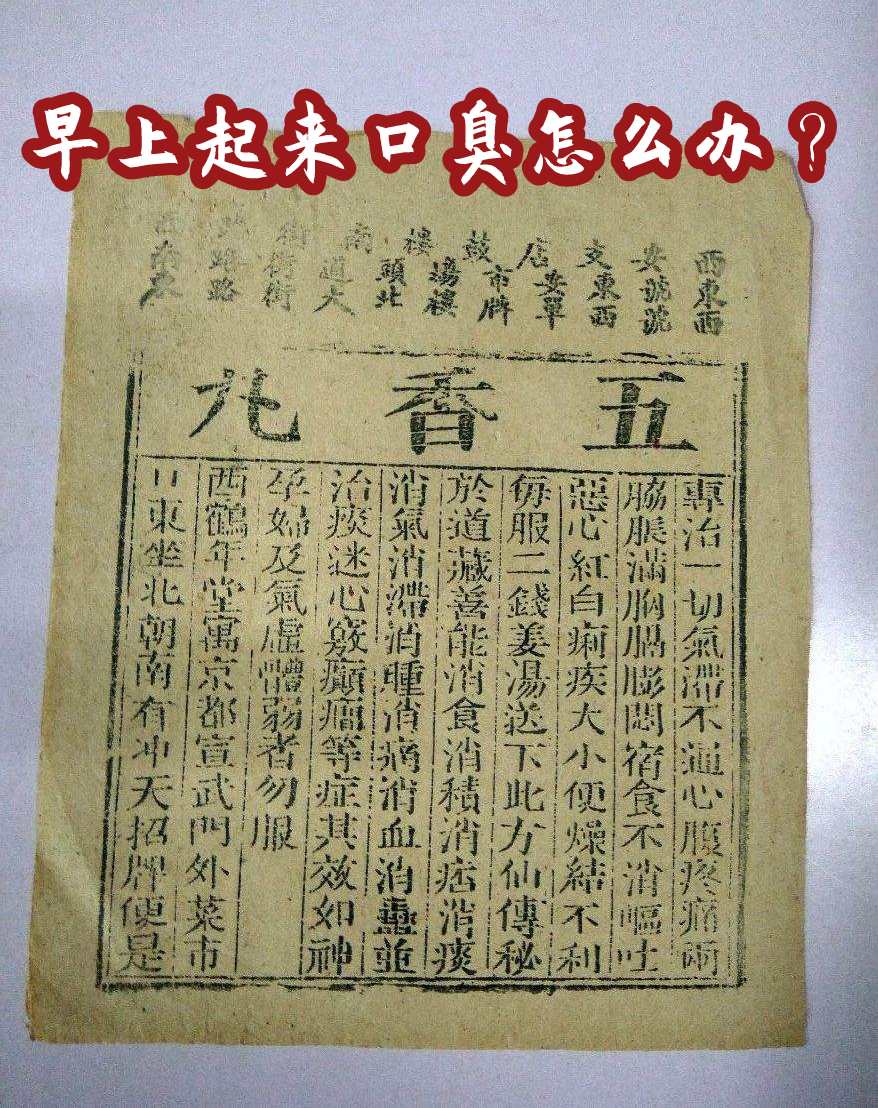 早上起来口臭怎么办？
西安支店鼓樓南街
東號東安市場頭道街路南
西號西單牌樓北大街路東
五香丸
專治一切氣滯不通心腹疼痛兩
脇脹滿胸膈膨悶宿食不消嘔吐
惡心紅白痢疾大小便燥結不利
每服二錢姜湯送下此方仙傳秘
於道藏善能消食消積消痞消痰
消氣消滯消腫消痛消血消蠱並
治痰迷心竅癲癎等症其效如神
孕婦及氣虛體弱者勿服
西鶴年堂寓京都宣武門外菜市
口東坐北朝南有冲天招牌便是